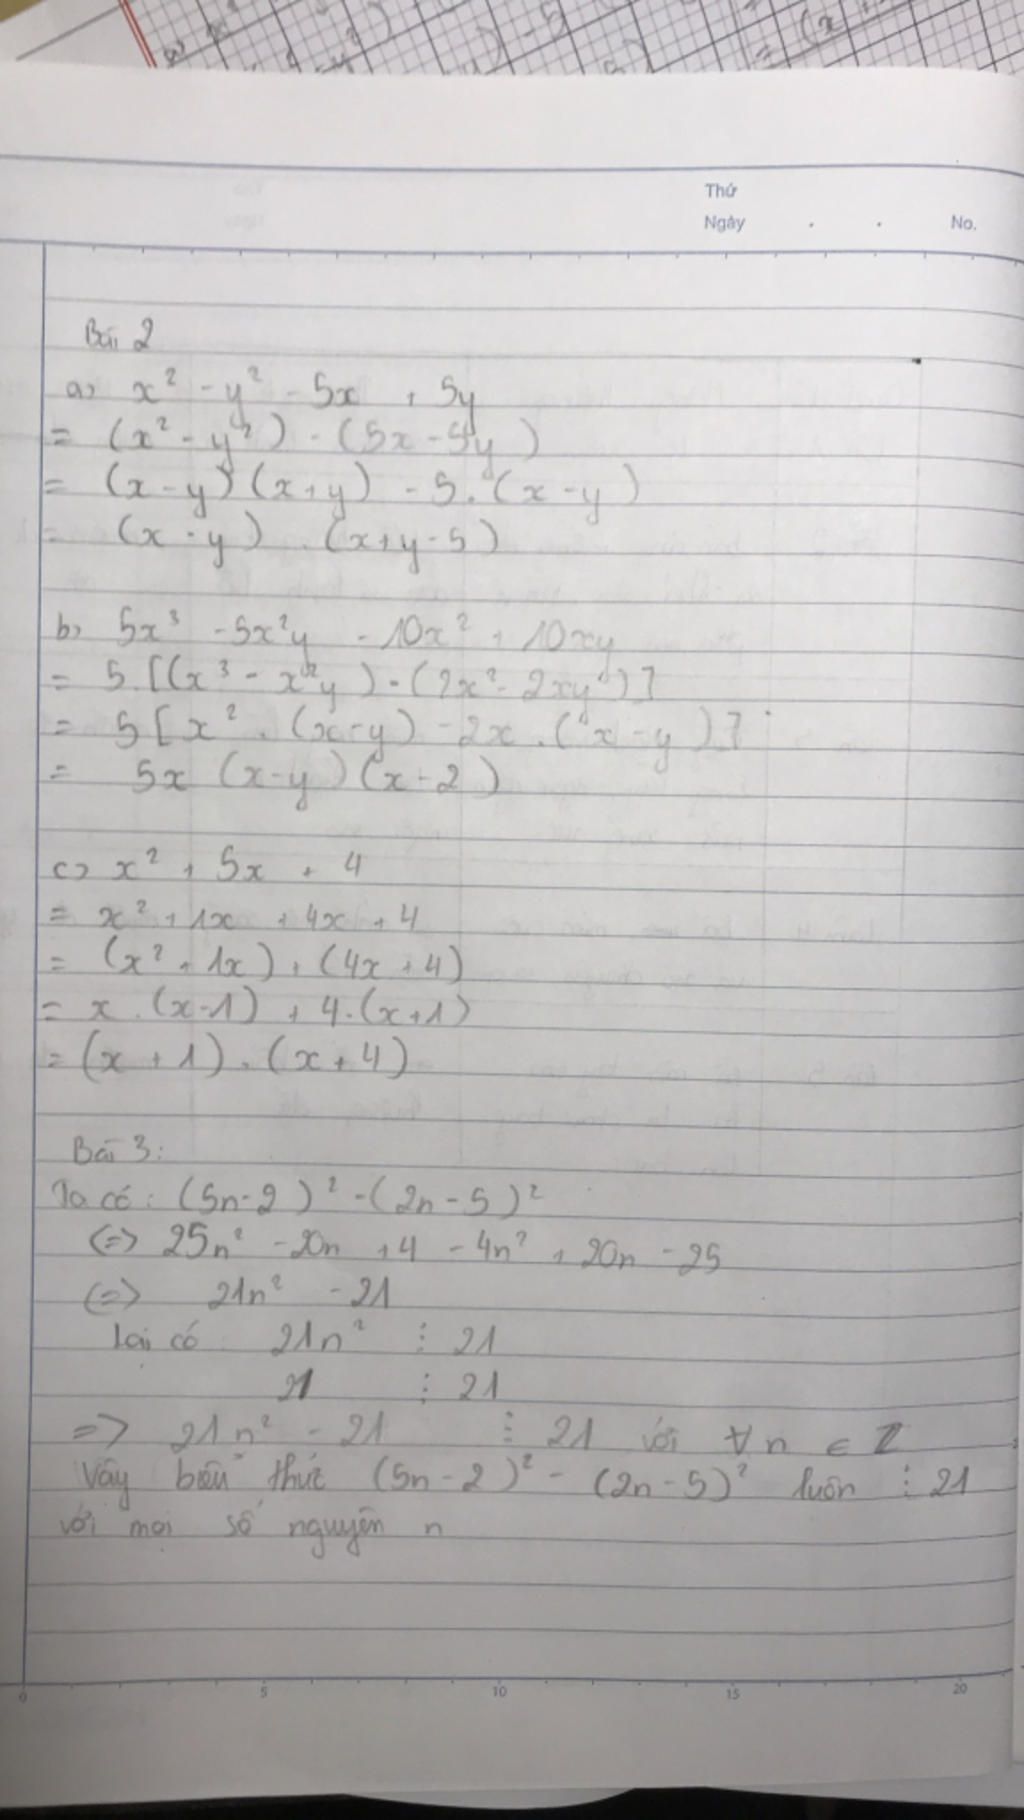 Thứ
Ngày . . No.
Bài 2
a) x² - y² - 5x + 5y
= (x² - y²) - (5x - 5y)
= (x - y) (x + y) - 5. (x - y)
= (x - y) . (x + y - 5)
b) 5x³ - 5x²y - 10x² + 10xy
= 5.[(x³ - x²y) - (2x² - 2xy)]
= 5[x² . (x - y) - 2x . (x - y)]
= 5x (x - y) (x - 2)
c) x² + 5x + 4
= x² + 1x + 4x + 4
= (x² + 1x) + (4x + 4)
= x . (x - 1) + 4. (x + 1)
= (x + 1) . (x + 4)
Bài 3:
Ta có: (5n - 2)² - (2n - 5)²
(=> 25n² - 20n + 4 - 4n² + 20n - 25
(=> 21n² - 21
lại có 21n² ⋮ 21
21 ⋮ 21
=> 21n² - 21 ⋮ 21 với ∀ n ∈ Z
Vậy biểu thức (5n - 2)² - (2n - 5)² luôn ⋮ 21
với mọi số nguyên n
0 5 10 15 20